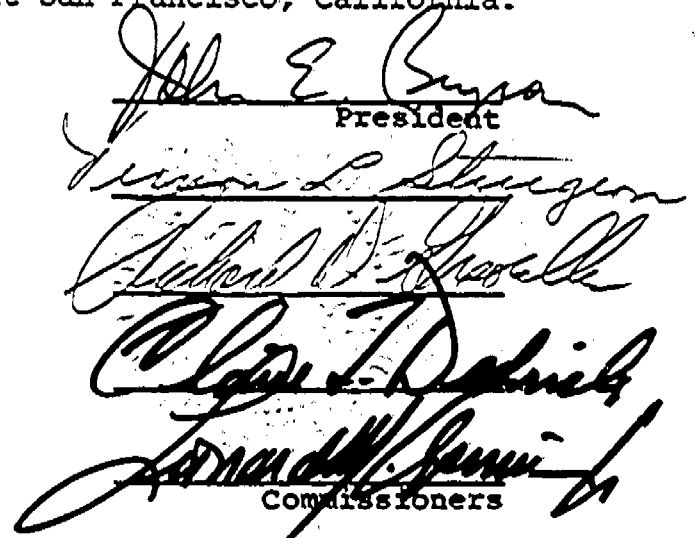 at San Francisco, California.
John E. Bryson
President
Vernon L. Sturgeon
Richard D. Gravelle
Claire T. Dedrick
Leonard M. Grimes, Jr.
Commissioners